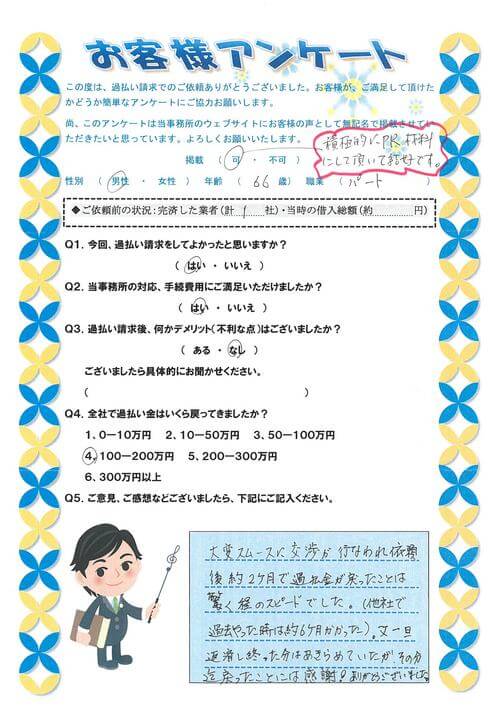 お客様アンケート
この度は、過払い請求でのご依頼ありがとうございました。お客様が、ご満足して頂けた
かどうか簡単なアンケートにご協力お願いします。
尚、このアンケートは当事務所のウェブサイトにお客様の声として無記名で掲載させてい
ただきたいと思っています。よろしくお願いいたします。
積極的にPR材料
にして頂いて結構です。
掲載 ( 可 ・ 不可 )
性別 ( 男性 ・ 女性 ) 年齢 ( 66 歳) 職業 ( パート )
◆ご依頼前の状況:完済した業者(計 1 社)・当時の借入総額(約 円)
Q1. 今回、過払い請求をしてよかったと思いますか?
( はい ・ いいえ )
Q2. 当事務所の対応、手続費用にご満足いただけましたか?
( はい ・ いいえ )
Q3. 過払い請求後、何かデメリット(不利な点)はございましたか?
( ある ・ なし )
ございましたら具体的にお聞かせください。
( )
Q4. 全社で過払い金はいくら戻ってきましたか?
1、0-10万円 2、10-50万円 3、50-100万円
4、100-200万円 5、200-300万円
6、300万円以上
Q5. ご意見、ご感想などございましたら、下記にご記入ください。
大変スムースに交渉が行なわれ依頼
後約2ヶ月で過払金が戻ったことは
驚く程のスピードでした。(他社で
過去やった時は約6ヶ月かかった)。又一旦
返済し終った分はあきらめていたが、その分
迄戻ったことには感謝!ありがとうございました。